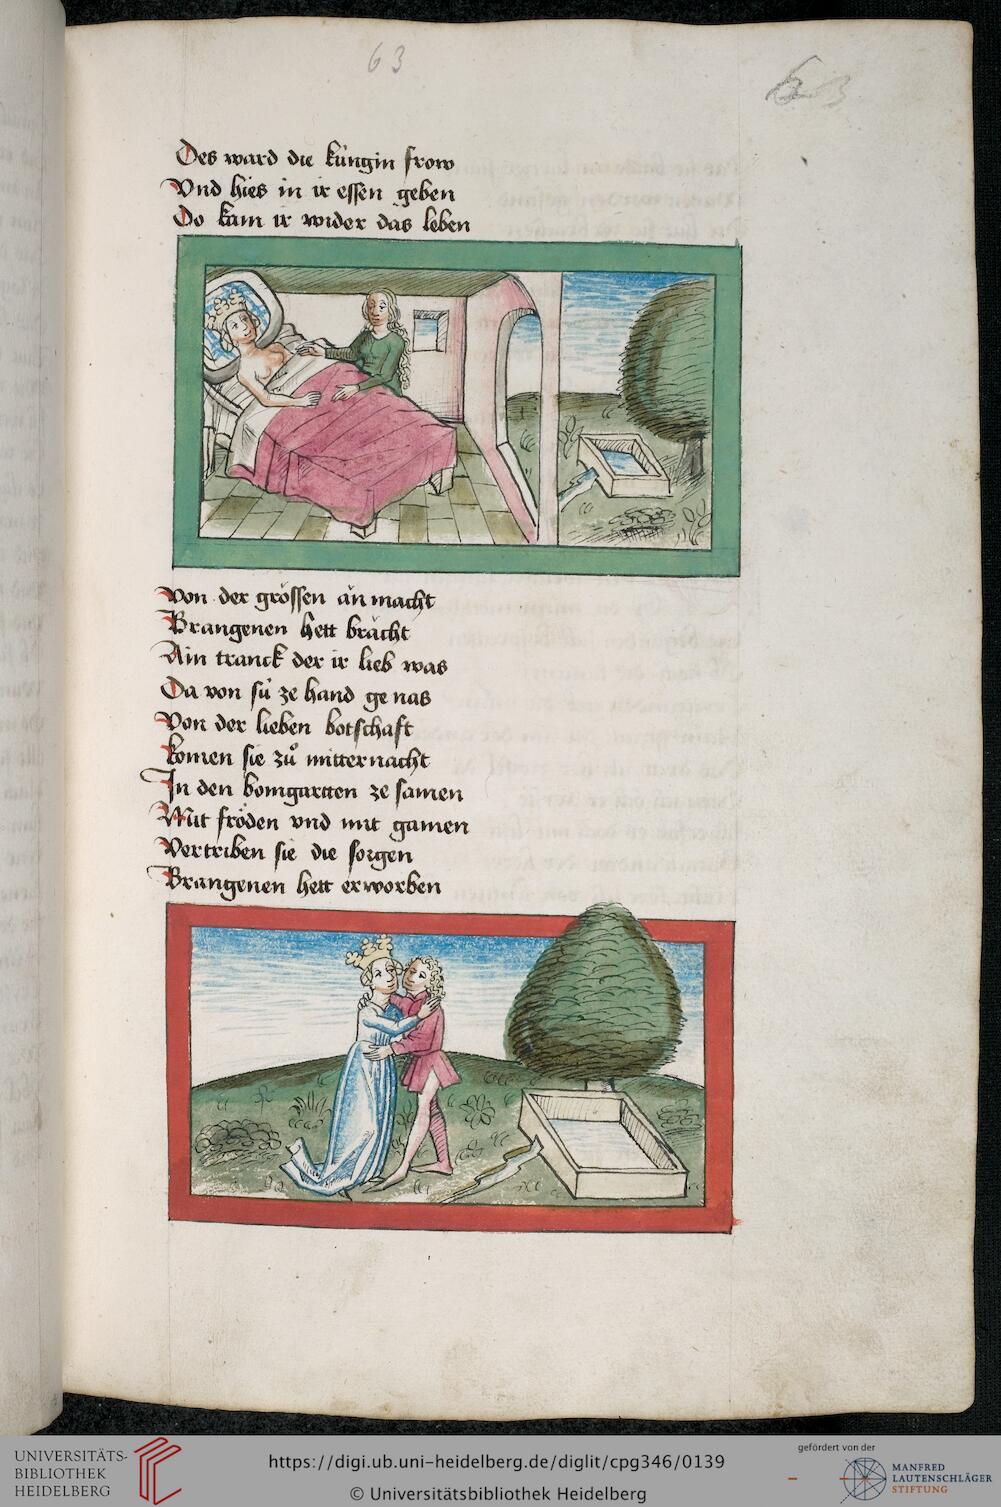 63
63
Des ward die kúngin frow
Vnd hies in ir essen geben
Do kam ir wider das leben
Von der grössen ân macht
Brangenen hett brâcht
Ain tranck der ir lieb was
Da von sú ze hand ge nas
Von der lieben botschaft
komen sie zů mitternacht
In den bomgartten ze samen
Mit fröden vnd mit gamen
Vertriben sie die sorgen
Brangenen hett erworben
UNIVERSITÄTS-
BIBLIOTHEK
HEIDELBERG
https://digi.ub.uni-heidelberg.de/diglit/cpg346/0139
© Universitätsbibliothek Heidelberg
gefördert von der
MANFRED
LAUTENSCHLÄGER
STIFTUNG